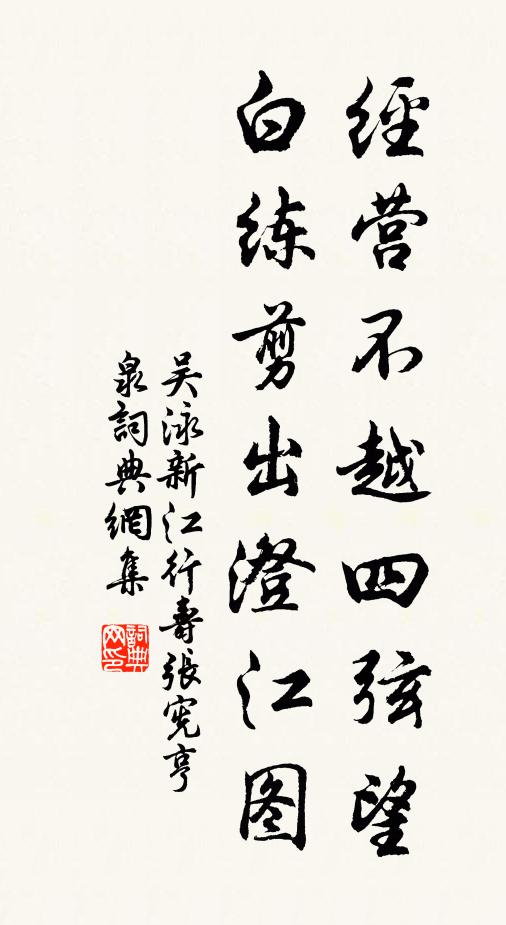 經营不越四弦望
白练剪出澄江图
吴泳新江行壽張宪亨
泉詞典網集
詞典网印